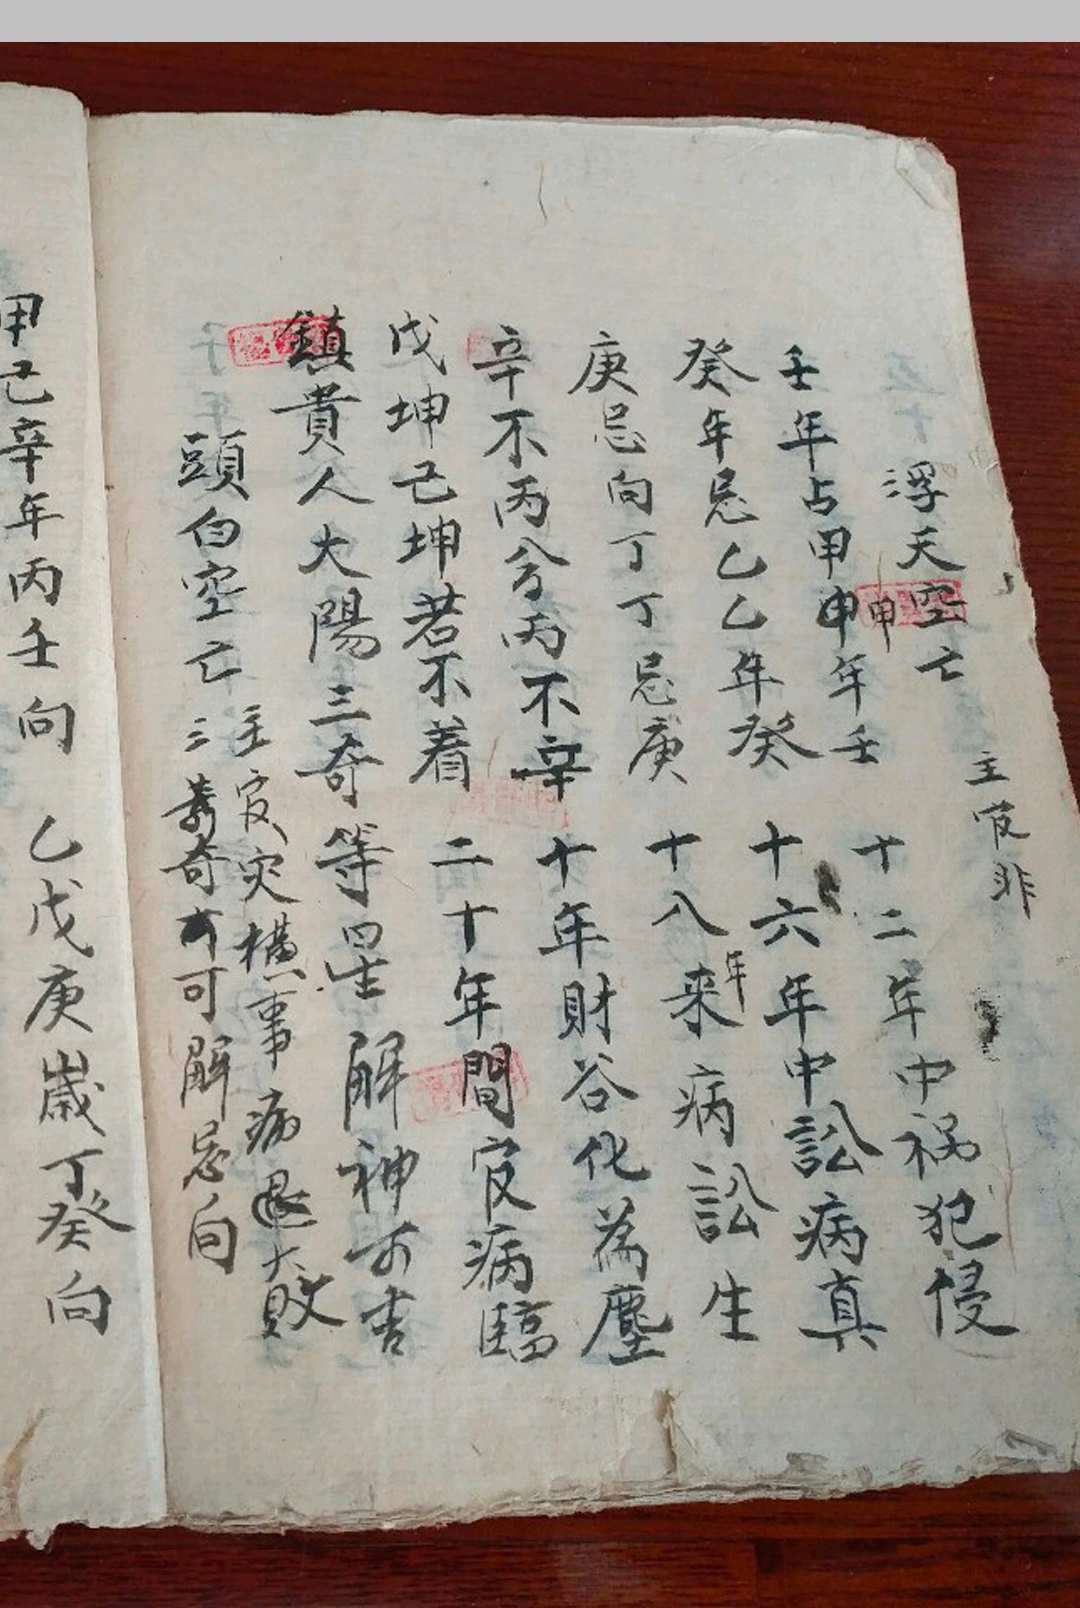 浮天空亡 主官非
壬年占甲申年壬 十二年中祸犯侵
甲
癸年忌乙乙年癸 十六年中訟病真
庚忌向丁丁忌庚 十八年来病訟生
辛不丙兮丙不辛 十年財谷化為塵
戊坤己坤若不着 二十年間官病臨
鎮貴人大陽三奇等星解神方吉
頭白空亡 主官灾橫事病退大敗
三奇可解忌向
甲己辛年丙壬向 乙戊庚歲丁癸向